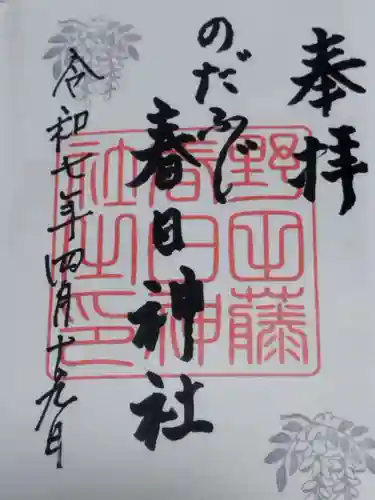 奉拝
のだふじ
春日神社
令和七年四月十九日
野田藤
春日神
社之印